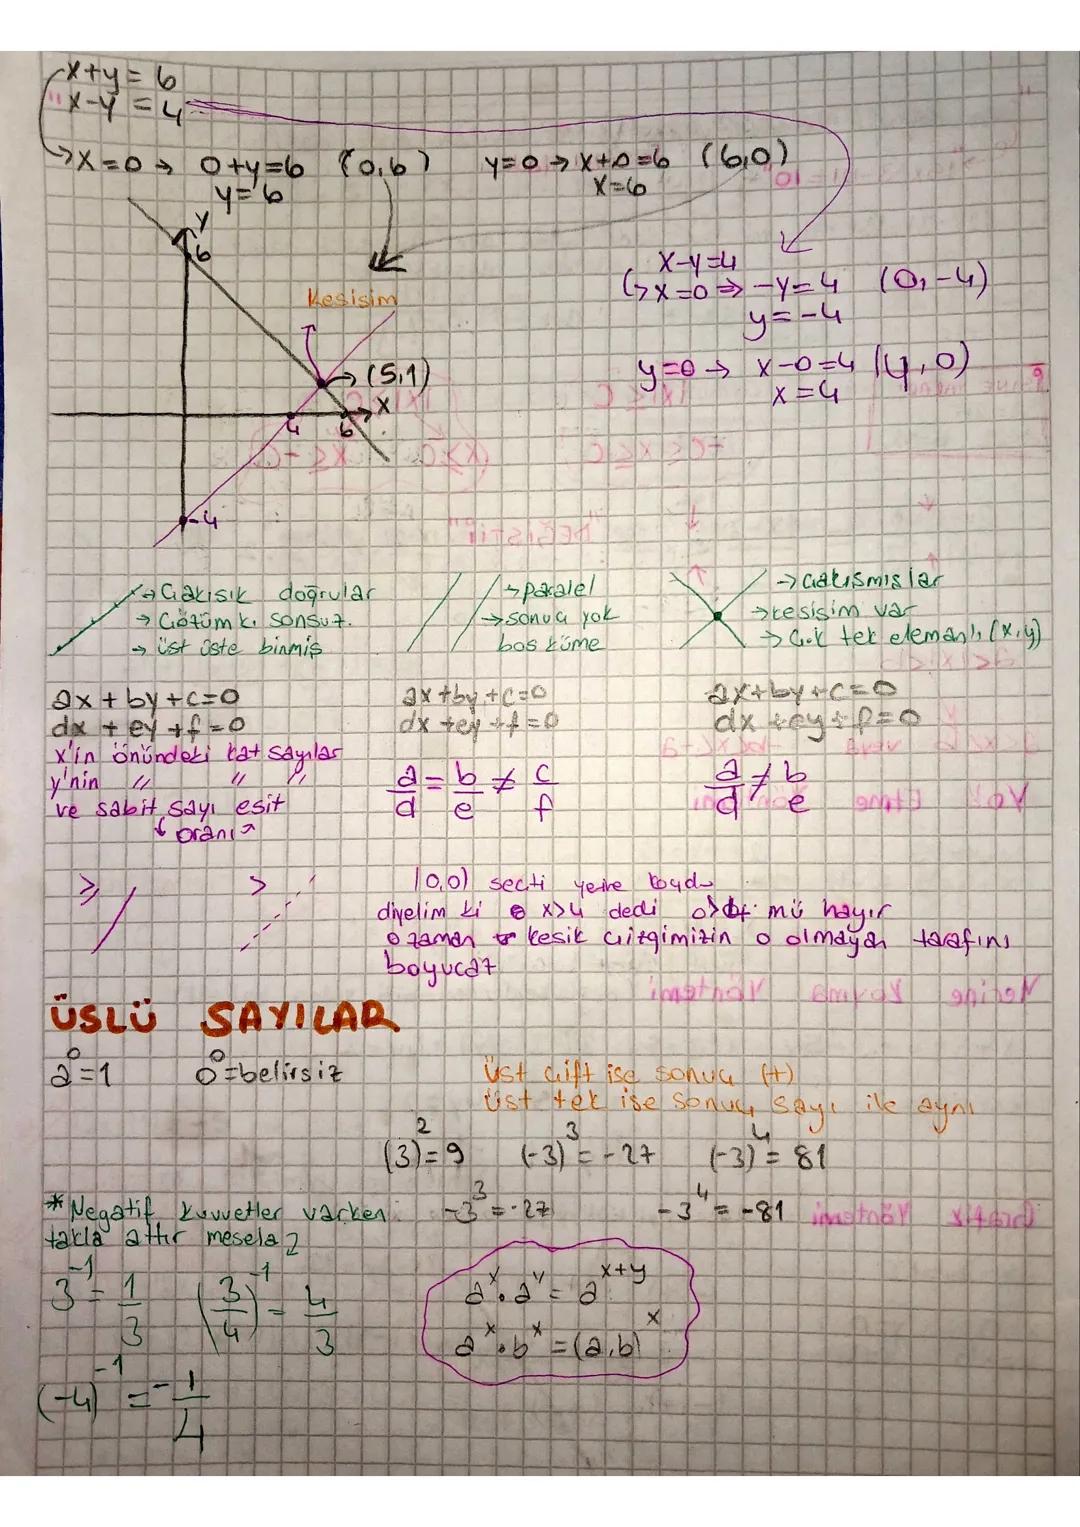 x+y=6
x-y=4
x=0 → 0+y=6 (0,6) y=0 → x+0=6 (6,0)
y=6 x=6
y
6
Kesişim
(5,1)
x
4 6
-4
x-y=4
x=0 ⇒ -y=4 (0,-4)
y=-4
y=0 → x-0=4 (4,0)
x=4
→ Çakışık doğrular
→ Çözüm k. sonsuz.
→ üst üste binmiş
→ paralel
→ sonuç yok
boş küme
→ Çakışmışlar
→ kesişim var
→ Ç.k tek elemanlı (x,y)
ax+by+c=0 ax+by+c=0 ax+by+c=0
dx+ey+f=0 dx+ey+f=0 dx+ey+f=0
x'in önündeki kat sayılar
y'nin " " "
ve sabit sayı eşit
oranı
a/d = b/e ≠ c/f
a/d ≠ b/e
≥ >
(0,0) seçti yerine koydu
diyelim ki x>4 dedi 0>4 mü hayır
o zaman kesik çizgimizin o olmayan tarafını
boyucaz
ÜSLÜ SAYILAR
a⁰=1 0⁰=belirsiz
üst çift ise sonuç (+)
üst tek ise sonuç sayı ile aynı
(3)²=9 (-3)³=-27 (-3)⁴=81
-3³=-27 -3⁴=-81
* Negatif kuvvetler varken
takla attır mesela
3⁻¹=1/3 (3/4)⁻¹=4/3
(-4)⁻¹=-1/4
aˣ.aʸ=aˣ⁺ʸ
aˣ.bˣ=(a.b)ˣ